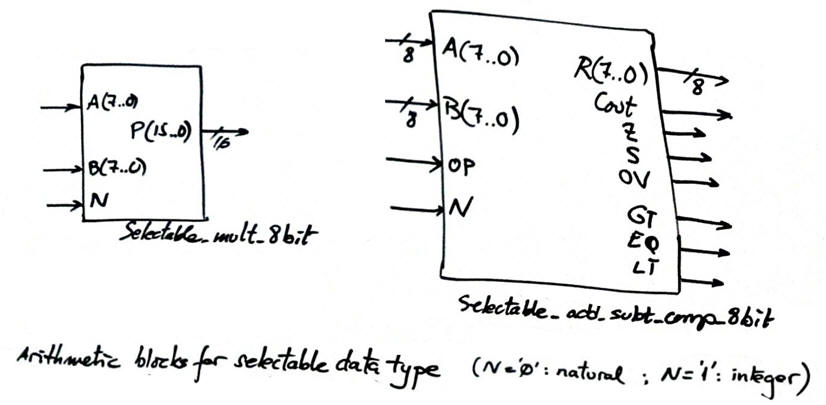 A(7..0)
P(15..0)
16
B(7..0)
N
Selectable_mult_8bit
8
A(7..0)
R(7..0)
8
Cout
8
B(7..0)
Z
S
OP
OV
N
GT
EQ
LT
Selectable_add_subt_comp_8bit
Arithmetic blocks for selectable data type (N='0': natural ; N='1': integer)